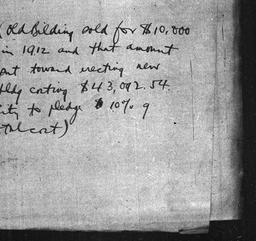 (Old Bilding sold for $10,000
in 1912 and that amount
toward erecting new
Bldg costing $43,092.54.
City to pledge $ 10% of
total cost)